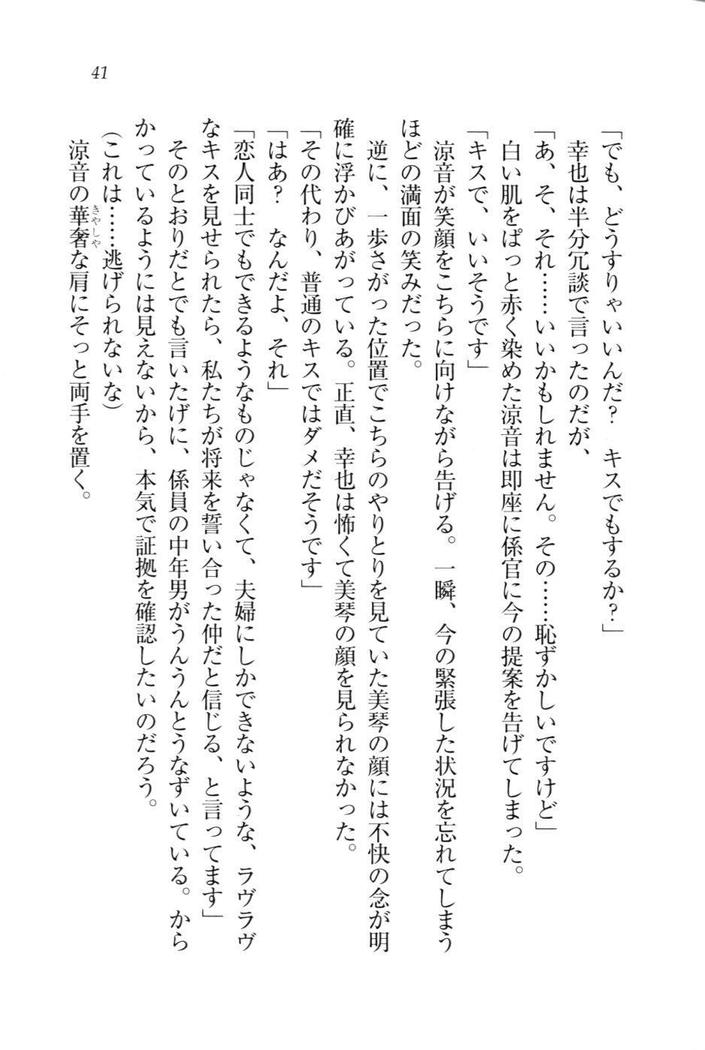 41
「でも、どうすりゃいいんだ？　キスでもするか？」
幸也は半分冗談で言ったのだが、
「あ、そ、それ……いいかもしれません。その……恥ずかしいですけど」
白い肌をぱっと赤く染めた涼音は即座に係官に今の提案を告げてしまった。
「キスで、いいそうです」
涼音が笑顔をこちらに向けながら告げる。一瞬、今の緊張した状況を忘れてしまう
ほどの満面の笑みだった。
逆に、一歩さがった位置でこちらのやりとりを見ていた美琴の顔には不快の念が明
確に浮かびあがっている。正直、幸也は怖くて美琴の顔を見られなかった。
「その代わり、普通のキスではダメだそうです」
「はあ？　なんだよ、それ」
「恋人同士でもできるようなものじゃなくて、夫婦にしかできないような、ラヴラヴ
なキスを見せられたら、私たちが将来を誓い合った仲だと信じる、と言ってます」
そのとおりだとでも言いたげに、係員の中年男がうんうんとうなずいている。から
かっているようには見えないから、本気で証拠を確認したいのだろう。
（これは……逃げられないな）
涼音の華奢きやしやな肩にそっと両手を置く。